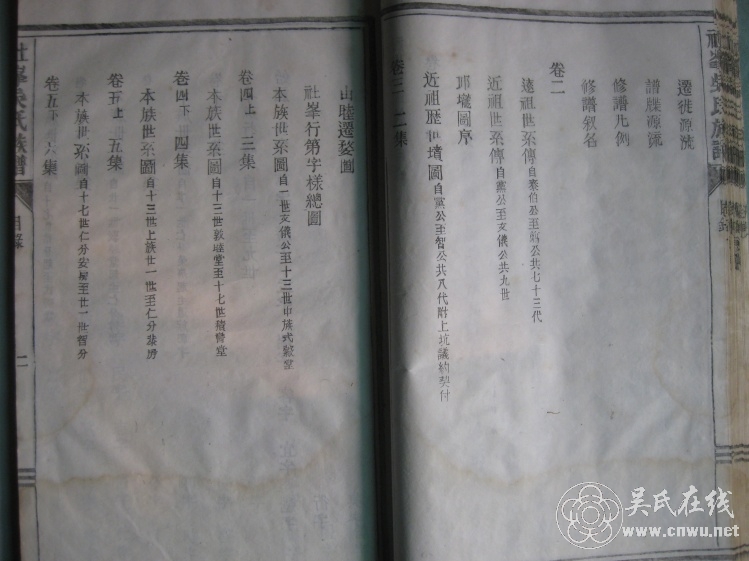 社峯吳氏族譜
遷徙源流
譜牒源流
修譜凡例
修譜叙名
卷二
遠祖世系傳自泰伯公至蒭公共七十三代
近祖世系傳自黨公至文儀公共九世
邱壠圖序
近祖歷世墳圖自黨公至智公共八代附上坑議約契付
卷三 二集
山睦遷婺圖
社峯行第字樣總圖
本族世系圖自一世文儀公至十三世中族式穀堂
卷四上 三集
本族世系圖自十三世敦睦堂至十七世積慶堂
卷四下 四集
本族世系圖自十三世上族廿一世至仁分裝房
卷五上 五集
本族世系圖自十七世仁分安房至廿一世智分
卷五下 六集
社峯吳氏族譜
目錄
二
吳氏在线
www.cnwu.net